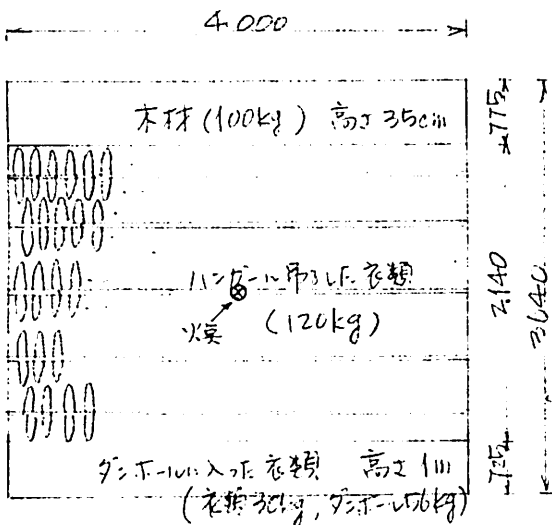 4.000
木材(100kg) 高さ35cm
775
ハンガーに吊るした衣類
火点
(120kg)
2.140
3640
725
ダンボールに入った衣類 高さ1m
ダンボール56kg)